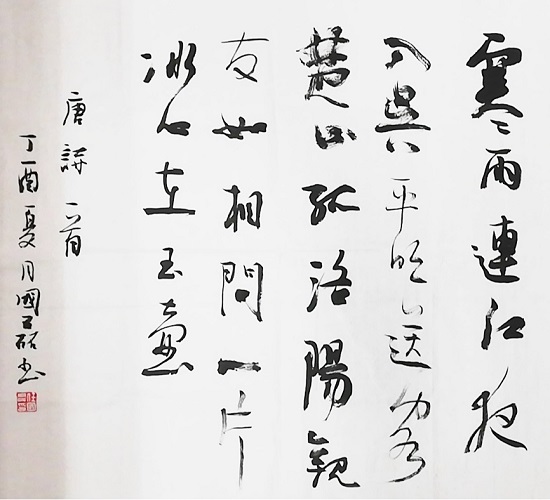 寒雨連江夜
入吳平明送客
楚山孤洛陽親
友如相問一片
冰心在玉壺
唐詩一首
丁酉夏月國书